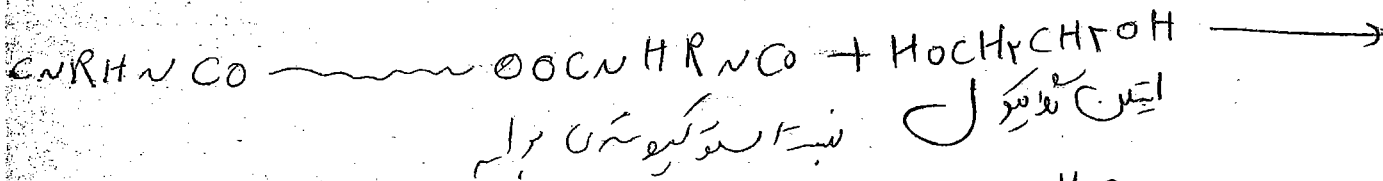 CNRHNCO ~~~~ OOCNHRNCO + HOCH۲CH۲OH →
اتیلن گلایکول نسبت استوکیومتری برابر
H